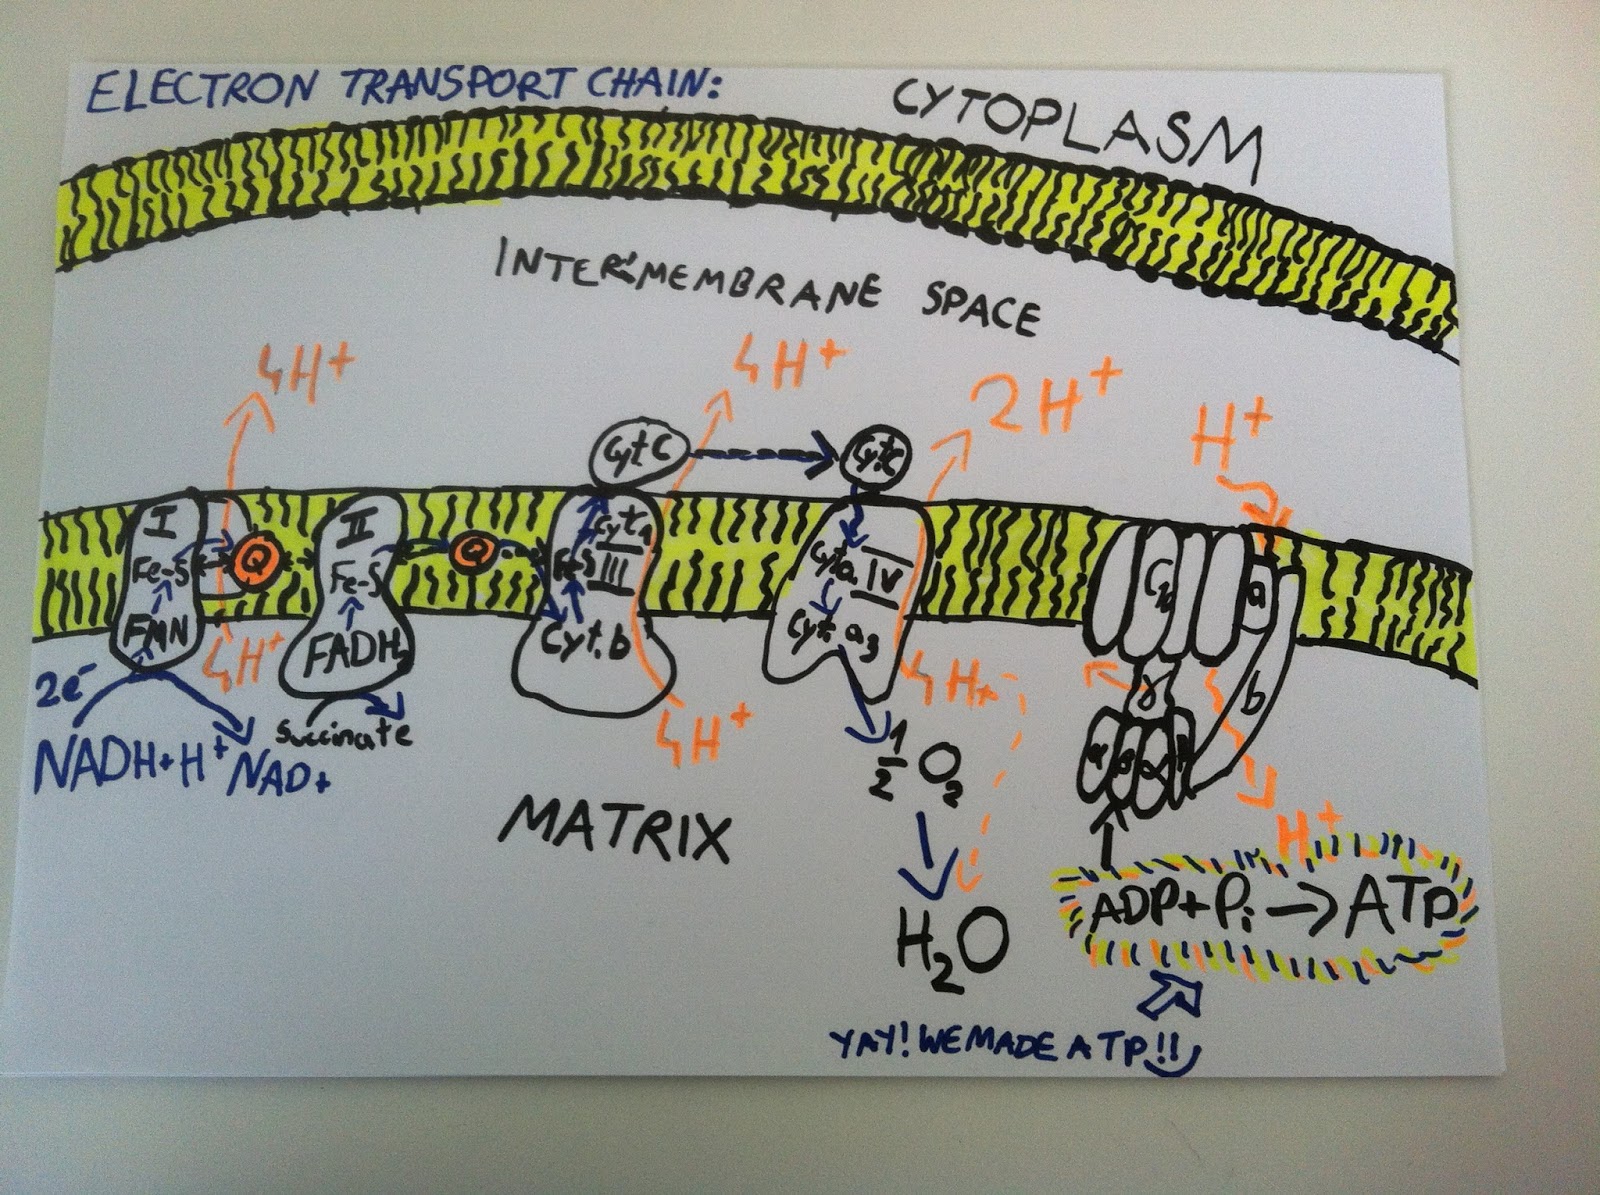 ELECTRON TRANSPORT CHAIN:
CYTOPLASM
INTERMEMBRANE SPACE
4H+
4H+
2H+
H+
Cyt C
Cyt C
I
Fe-S
FMN
Q
II
Fe-S
FADH2
Q
Cyt 1
Fe-S
III
Cyt. b
Cyt a
IV
Cyt. a3
a
b
γ
α
β
α
4H+
4H+
4H+
2e-
NADH+H+
NAD+
Succinate
1/2 O2
H2O
MATRIX
H+
ADP+Pi→ATP
YAY! WE MADE ATP!!